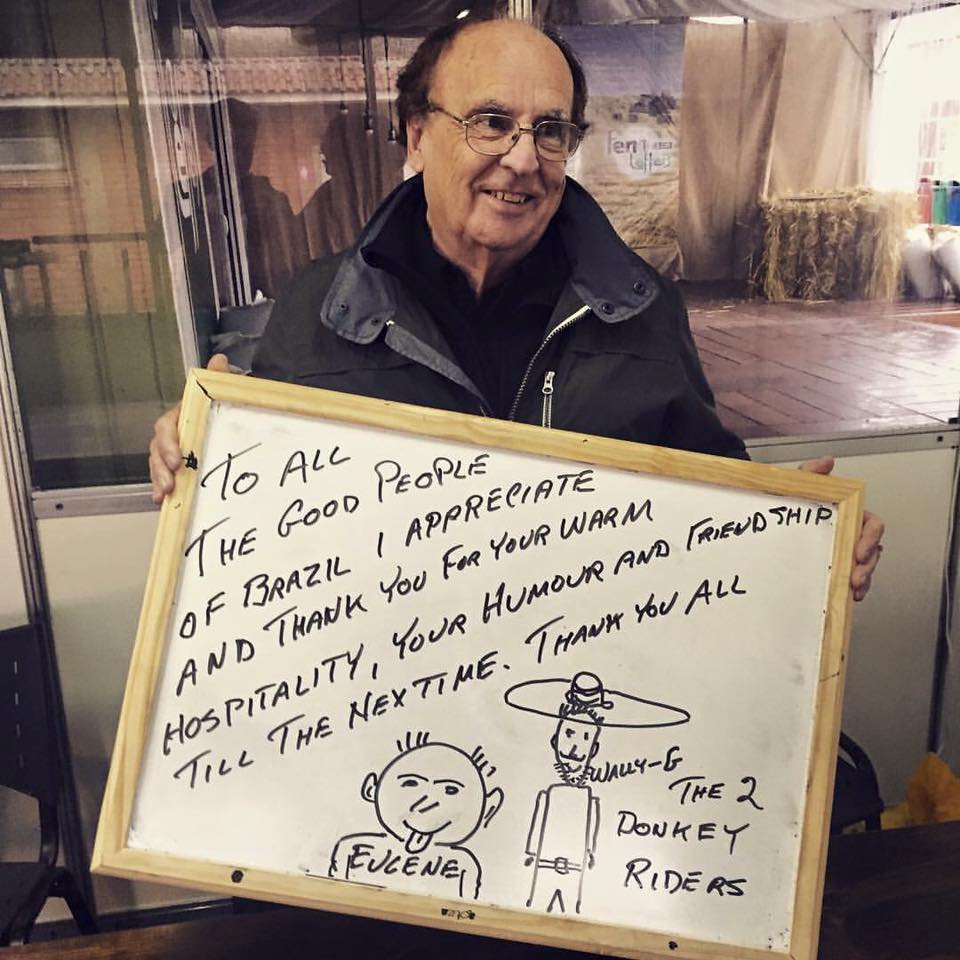 TO ALL
THE GOOD PEOPLE
OF BRAZIL I APPRECIATE
AND THANK YOU FOR YOUR WARM
HOSPITALITY, YOUR HUMOUR AND FRIENDSHIP
TILL THE NEXT TIME. THANK YOU ALL
EUGENE
WALLY-G
THE 2
DONKEY
RIDERS